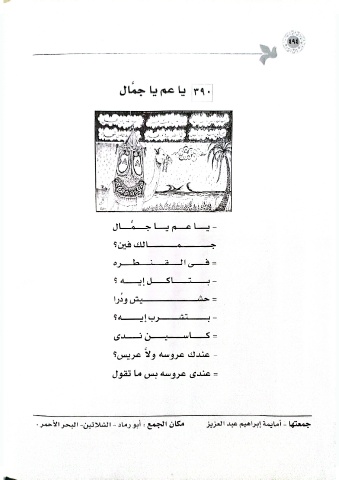 ٤٩٤
٣٩٠ يا عم يا جمَّال
- يــا عــم يــا جــمَّــال
جــمــالك فين؟
= فــى الــقــنــطــره
- بــتــاكــل إيــه ؟
= حــشــيــش ودُرا
- بــتــشــرب إيــه؟
= كــاســيــن نــدى
- عندك عروسه ولاَّ عريس؟
= عندى عروسه بس ما تقول
جمعتها - أمايمة إبراهيم عبد العزيز مكان الجمع : أبو رماد - الشلاتين - البحر الأحمر .